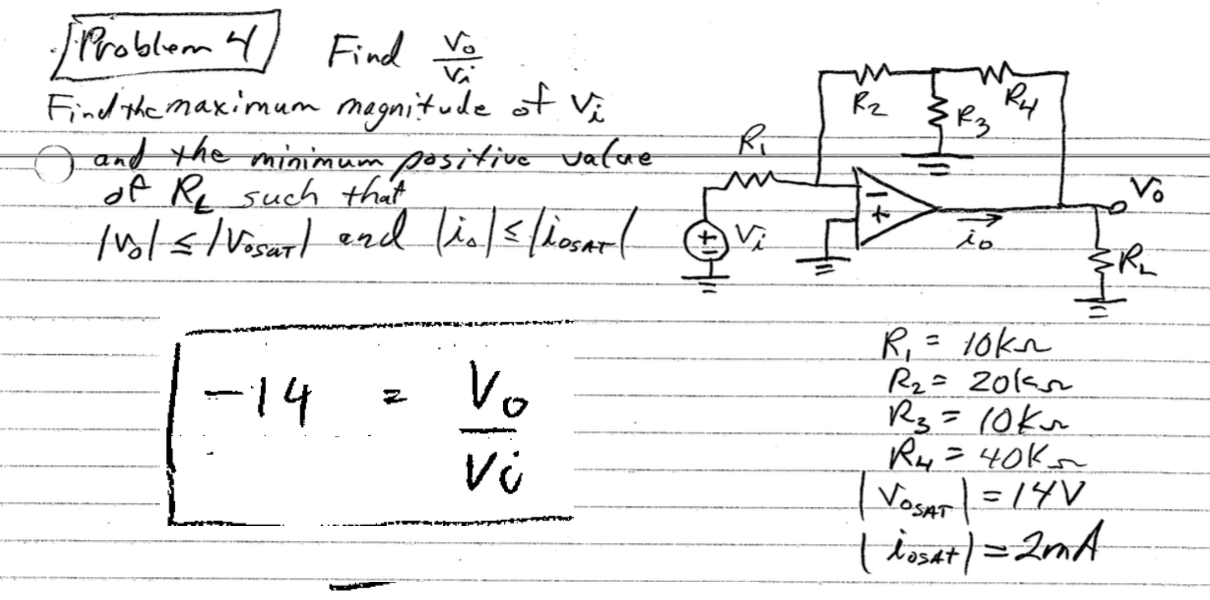 Problem 4 Find Vo/Vi
Find the maximum magnitude of Vi
and the minimum positive value
of RL such that
|Vo| ≤ |VOSAT| and |io| ≤ |iOSAT|
R2 R3 R4
R1
+ − Vi
− +
io
Vo
RL
-14 = Vo/Vi
R1 = 10kΩ
R2 = 20kΩ
R3 = 10kΩ
R4 = 40kΩ
|VOSAT| = 14V
|iOSAT| = 2mA